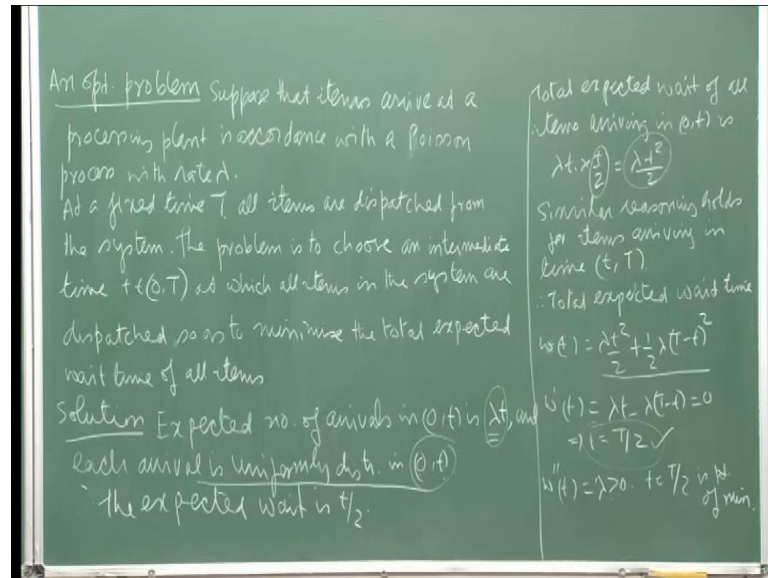 An opt. problem Suppose that items arrive at a
processing plant in accordance with a Poisson
process with rate λ.
At a fixed time T, all items are dispatched from
the system. The problem is to choose an intermediate
time t ∈ (0,T) at which all items in the system are
dispatched so as to minimise the total expected
wait time of all items.
Solution Expected no. of arrivals in (0,t) is λt, and
each arrival is uniformly distr. in (0,t)
∴ the expected wait is t/2.
Total expected wait of all
items arriving in (0,t) is
λt. × t/2 = λt²/2
Similar reasoning holds
for items arriving in
time (t, T)
∴ Total expected wait time
w(t) = λt²/2 + 1/2 λ(T-t)²
w'(t) = λt - λ(T-t) = 0
⇒ t = T/2 ✓
w''(t) = λ>0. t = T/2 is pt.
of min.